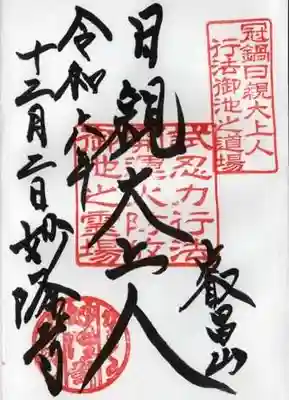 冠鍋日親大上人
行法御池之道場
叡昌山
日親大上人
試忍力行法
御池之霊場
令和六年
十二月二日 妙隆寺